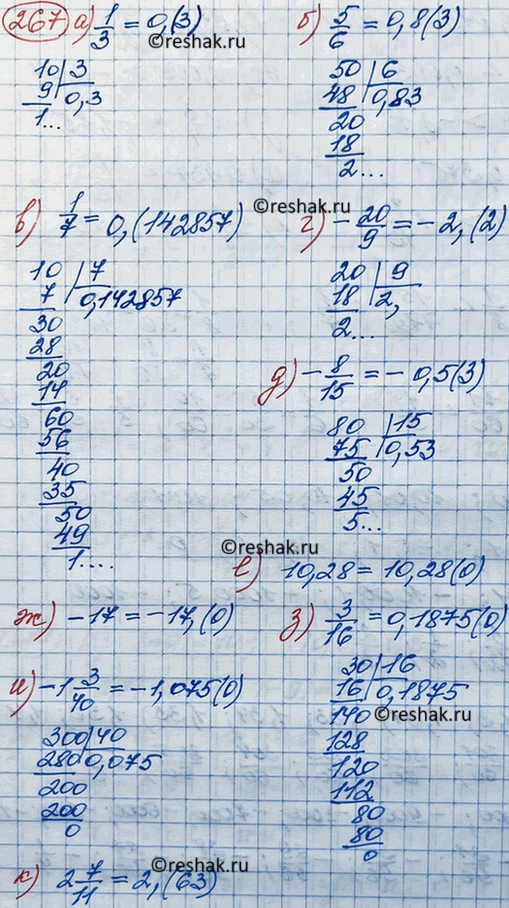 267 а) 1/3 = 0,(3) б) 5/6 = 0,8(3)
©reshak.ru
10 | 3
9 | 0,3
1...
50 | 6
48 | 0,83
20
18
2...
©reshak.ru
в) 1/7 = 0,(142857) г) -20/9 = -2,(2)
10 | 7
7 | 0,142857
30
28
20
14
60
56
40
35
50
49
1....
20 | 9
18 | 2,
2...
д) -8/15 = -0,5(3)
80 | 15
75 | 0,53
50
45
5...
©reshak.ru
е) 10,28 = 10,28(0)
ж) -17 = -17,(0) з) 3/16 = 0,1875(0)
30 | 16
16 | 0,1875
140
128
120
112
80
80
0
©reshak.ru
и) -1 3/40 = -1,075(0)
300 | 40
280 | 0,075
200
200
0
©reshak.ru
к) 2 7/11 = 2,(63)